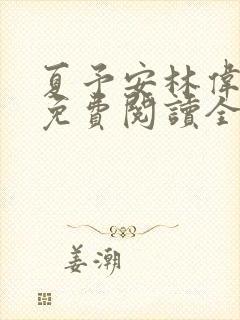 夏予安林偉
免費閱讀全
姜潮